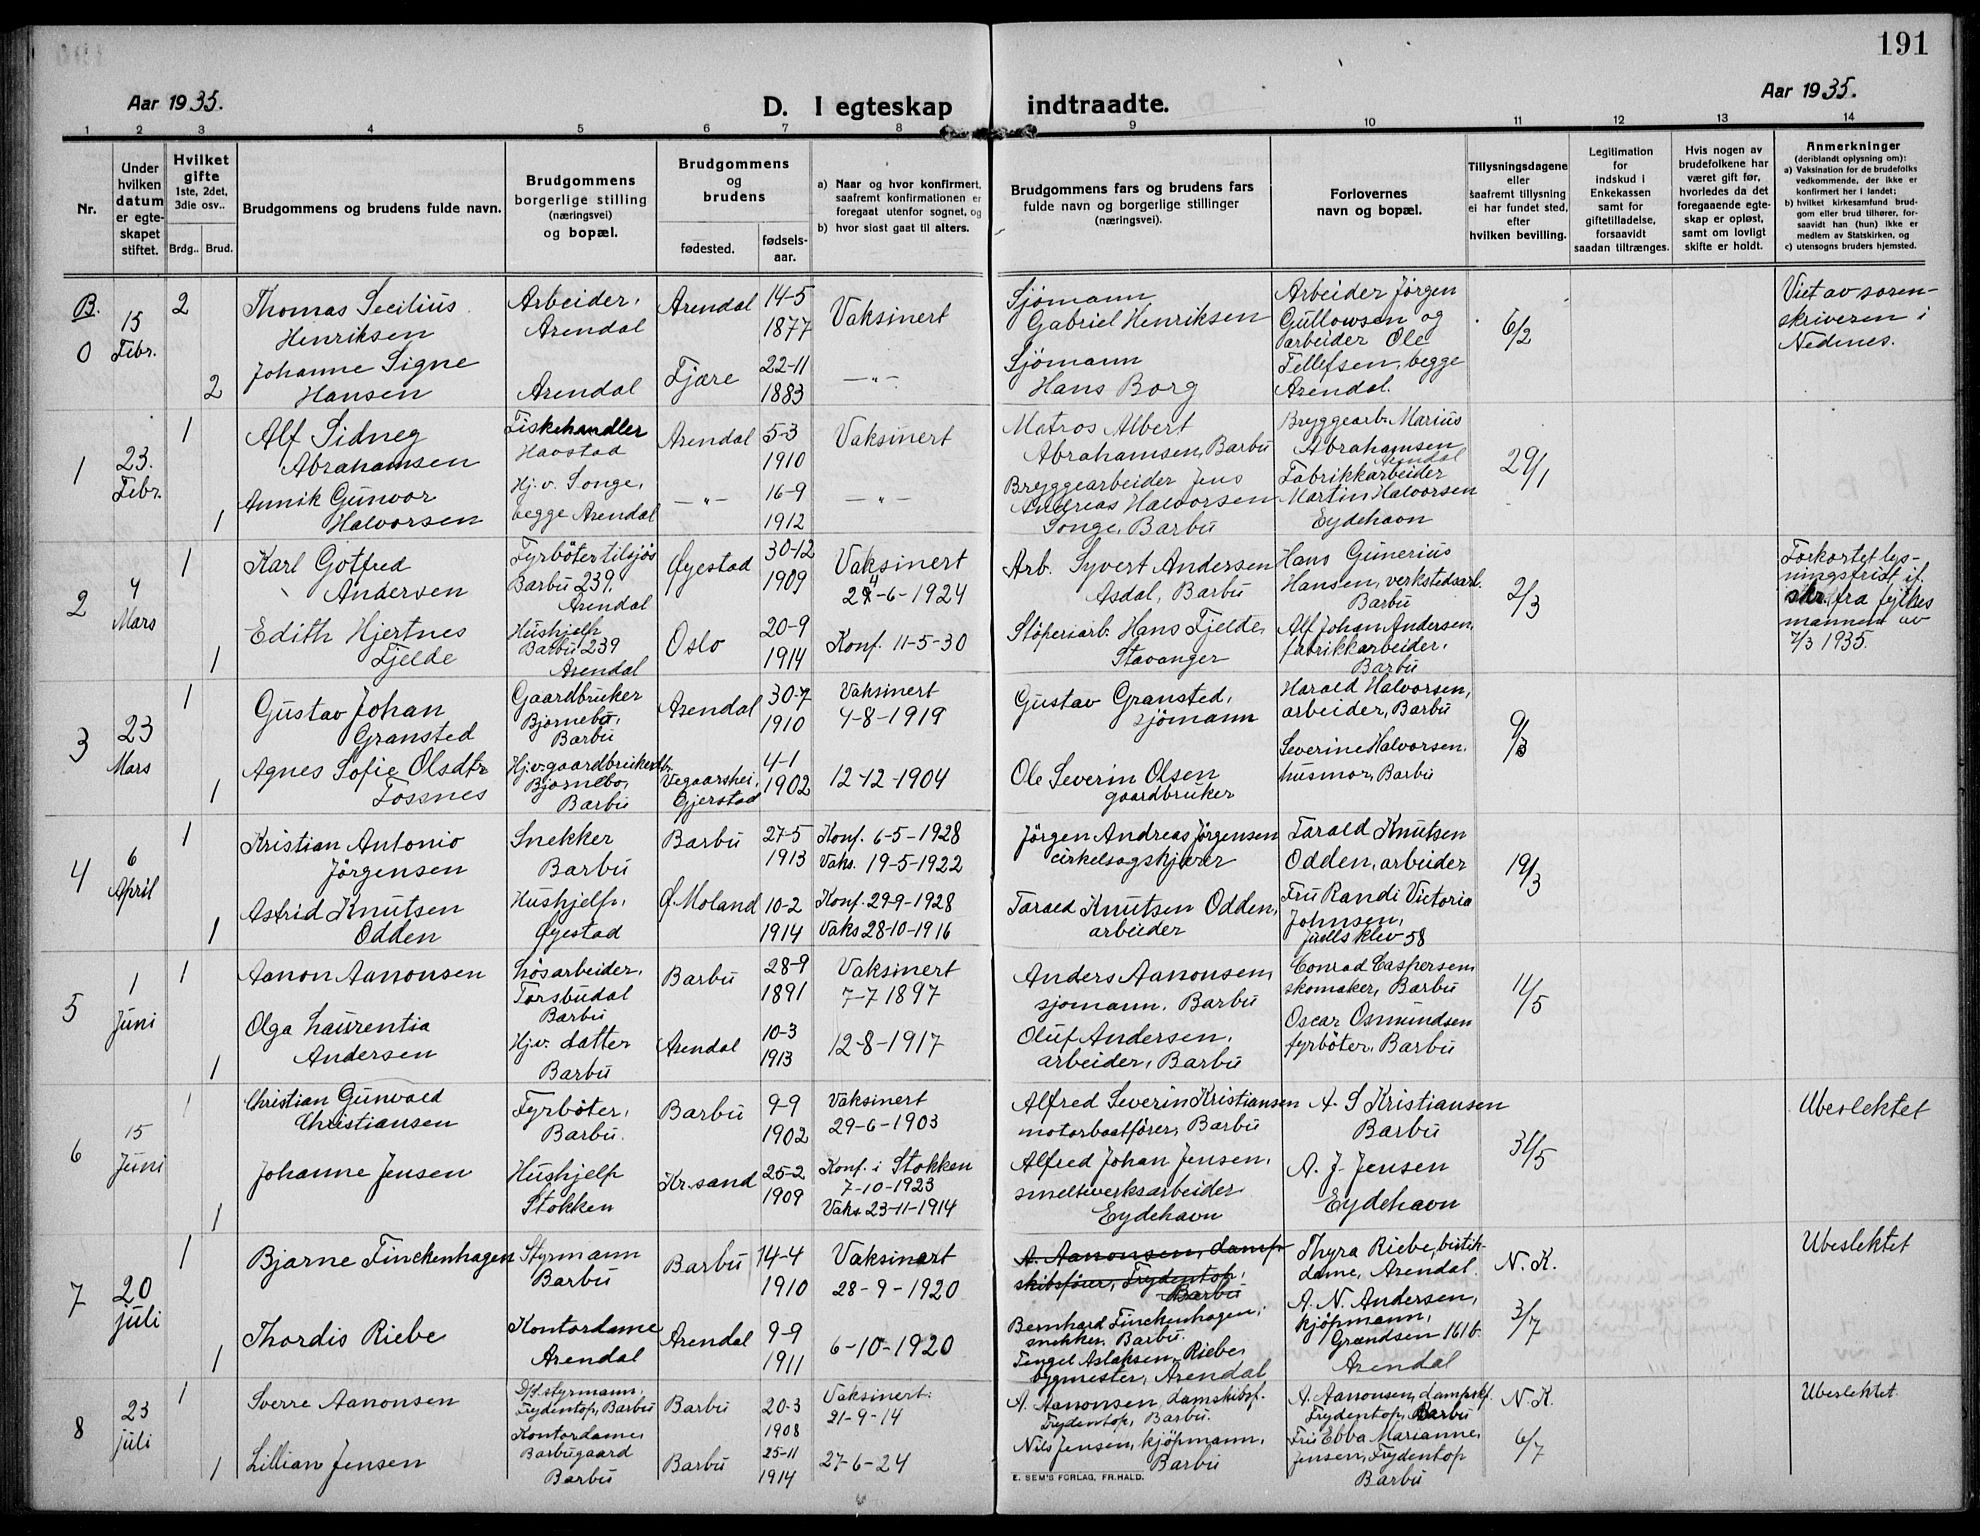 191
Aar 1935.
D. I egteskap indtraadte.
Aar 1935.
1 2 3 4 5 6 7 8 9 10 11 12 13 14
Nr.
Under hvilken datum er egteskapet stiftet.
Hvilket gifte 1ste, 2det, 3die osv..
Brdg.. Brud.
Brudgommens og brudens fulde navn.
Brudgommens borgerlige stilling (næringsvei) og bopæl.
Brudgommens og brudens
fødested. fødselsaar.
a) Naar og hvor konfirmert, saafremt konfirmationen er foregaat utenfor sognet, og
b) hvor sidst gaat til alters.
Brudgommens fars og brudens fars fulde navn og borgerlige stillinger (næringsvei).
Forlovernes navn og bopæl.
Tillysningsdagene eller saafremt tillysning ei har fundet sted, efter hvilken bevilling.
Legitimation for indskud i Enkekassen samt for giftetilladelse, forsaavidt saadan tiltrænges.
Hvis nogen av brudefolkene har været gift før, hvorledes da det foregaaende egteskap er opløst, samt om lovligt skifte er holdt.
Anmerkninger
(deriblandt oplysning om):
a) Vaksination for de brudefolks vedkommende, der ikke er konfirmert her i landet;
b) hvilket kirkesamfund brudgom eller brud tilhører, forsaavidt han (hun) ikke er medlem av Statskirken, og
c) utensogns bruders hjemsted.
B.
0
15 Febr.
2
Thomas Secilius Henriksen
Arbeider, Arendal
Arendal
14-5 1877
Vaksinert
Sjömann Gabriel Henriksen
Arbeider Jörgen Gullowsen og arbeider Ole Tellefsen, begge Arendal.
6/2
Viet av sorenskriveren i Nedenes.
2
Johanne Signe Hansen
Arendal
Fjære
22-11 1883
—"—
Sjömann Hans Borg
1
23. Febr.
1
Alf Sidney Abrahamsen
Fiskehandler Havstad
Arendal
5-3 1910
Vaksinert
Matros Albert Abrahamsen, Barbu
Bryggearb. Marius Abrahamsen Arendal
Fabrikkarbeider Martin Halvorsen Eydehavn
29/1
1
Annik Gunvor Halvorsen
Hj.v. Songe, begge Arendal
—"—
16-9 1912
—"—
Bryggearbeider Jens Andreas Halvorsen Songe, Barbu
2
4 Mars
1
Karl Gotfred Andersen
Fyrböter tilsjös Barbu 239, Arendal
Øyestad
30-12 1909
Vaksinert 24-6-1924
Arb. Syvert Andersen Asdal, Barbu
Hans Gunerius Hansen, verkstedsarb. Barbu
2/3
Forkortet lysningsfrist if. skr. fra fylkesmannen av 2/3 1935.
1
Edith Hjertnes Fjelde
Hushjelp Barbu 239 Arendal
Oslo
20-9 1914
Konf. 11-5-30
Stöperiarb. Hans Fjelde, Stavanger
Alf Johan Andersen, fabrikkarbeider, Barbu
3
23 Mars
1
Gustav Johan Gransted
Gaardbruker Bjornebu, Barbu
Arendal
30-7 1910
Vaksinert 4-8-1919
Gustav Gransted, sjömann
Harald Halvorsen, arbeider, Barbu
9/3
1
Agnes Sofie Olsdtr Fossnes
Hj.v. gaardbruker Bjornebo, Barbu
Vegaarshei, Gjerstad
4-1 1902
12-12-1904
Ole Severin Olsen gaardbruker
Severine Halvorsen, husmor, Barbu
4
6 April
1
Kristian Antonio Jörgensen
Snekker Barbu
Barbu
27-5 1913
Konf. 6-5-1928 Vaks. 19-5-1922
Jörgen Andreas Jörgensen cirkelsagskjærer
Tarald Knutsen Odden, arbeider
19/3
1
Astrid Knutsen Odden
Hushjelp, Øyestad
Ø. Moland
10-2 1914
Konf. 29-9-1928 Vaks 28-10-1916
Tarald Knutsen Odden, arbeider
Fru Randi Victoria Johnsen, Juells klev 58
5
1 Juni
1
Aanon Aanonsen
Lösarbeider, Torsbudal Barbu
Barbu
28-9 1891
Vaksinert 7-7 1897
Anders Aanonsen, sjomann, Barbu
Conrad Caspersen, skomaker, Barbu
11/5
1
Olga Laurentia Andersen
Hj.v. datter Barbu
Arendal
10-3 1913
12-8-1917
Oluf Andersen, arbeider, Barbu
Oscar Osmundsen fyrböter, Barbu
6
15 Juni
1
Christian Gunvald Christiansen
Fyrböter, Barbu.
Barbu
9-9 1902
Vaksinert 29-6-1903
Alfred Severin Kristiansen motorbaatförer, Barbu
A. S Kristiansen Barbu
31/5
Ubeslektet
1
Johanne Jensen
Hushjelp Stokken
Kr.sand
25-2 1909
Konf. i Stokken 7-10-1923 Vaks 23-11-1914
Alfred Johan Jensen, smelteverksarbeider Eydehavn
A. J. Jensen Eydehavn
7
20 juli
1
Bjarne Finckenhagen
Styrmann Barbu
Barbu
14-4 1910
Vaksinert 28-9-1920
A. Aanonsen, dampskibsförer, Frydentop, Barbu
Bernhard Finckenhagen, snekker, Barbu.
Thyra Riebe, butikdame, Arendal.
N. K.
3/7
Ubeslektet
1
Thordis Riebe
Kontordame Arendal
Arendal
9-9 1911
6-10-1920
Tengel Aslaksen Riebe, bygmester, Arendal
A. N. Andersen, kjöpmann, Grændsen 161b. Arendal
8
23 juli
1
Sverre Aanonsen
D/S.styrmann, Frydentop, Barbu
Barbu
20-3 1908
Vaksinert: 21-9-14
A. Aanonsen, damskibsf. Frydentop, Barbu.
A. Aanonsen, dampskf. Frydentop, Barbu
N. K.
6/7
Ubeslektet
1
Lillian Jensen
Kontordame, Barbugaard Barbu
Barbu
25-11 1914
27-6-24
Nils Jensen, kjöpmann, Barbu
Fru Ebba Marianne Jensen, Frydentop Barbu
E. SEM'S FORLAG, FR.HALD.